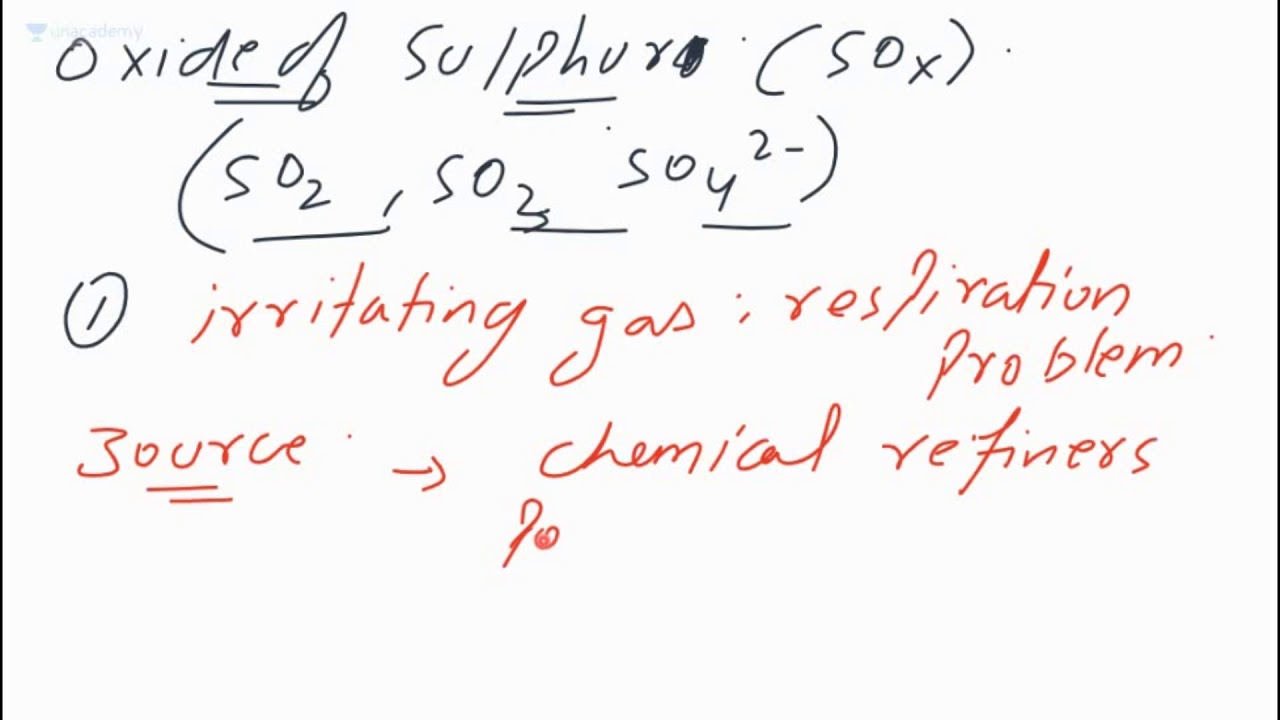 unacademy
Oxide of Sulphur (SOx)
(SO2, SO3 SO4 2-)
① irritating gas : respiration
problem
Source → chemical refiners
Po